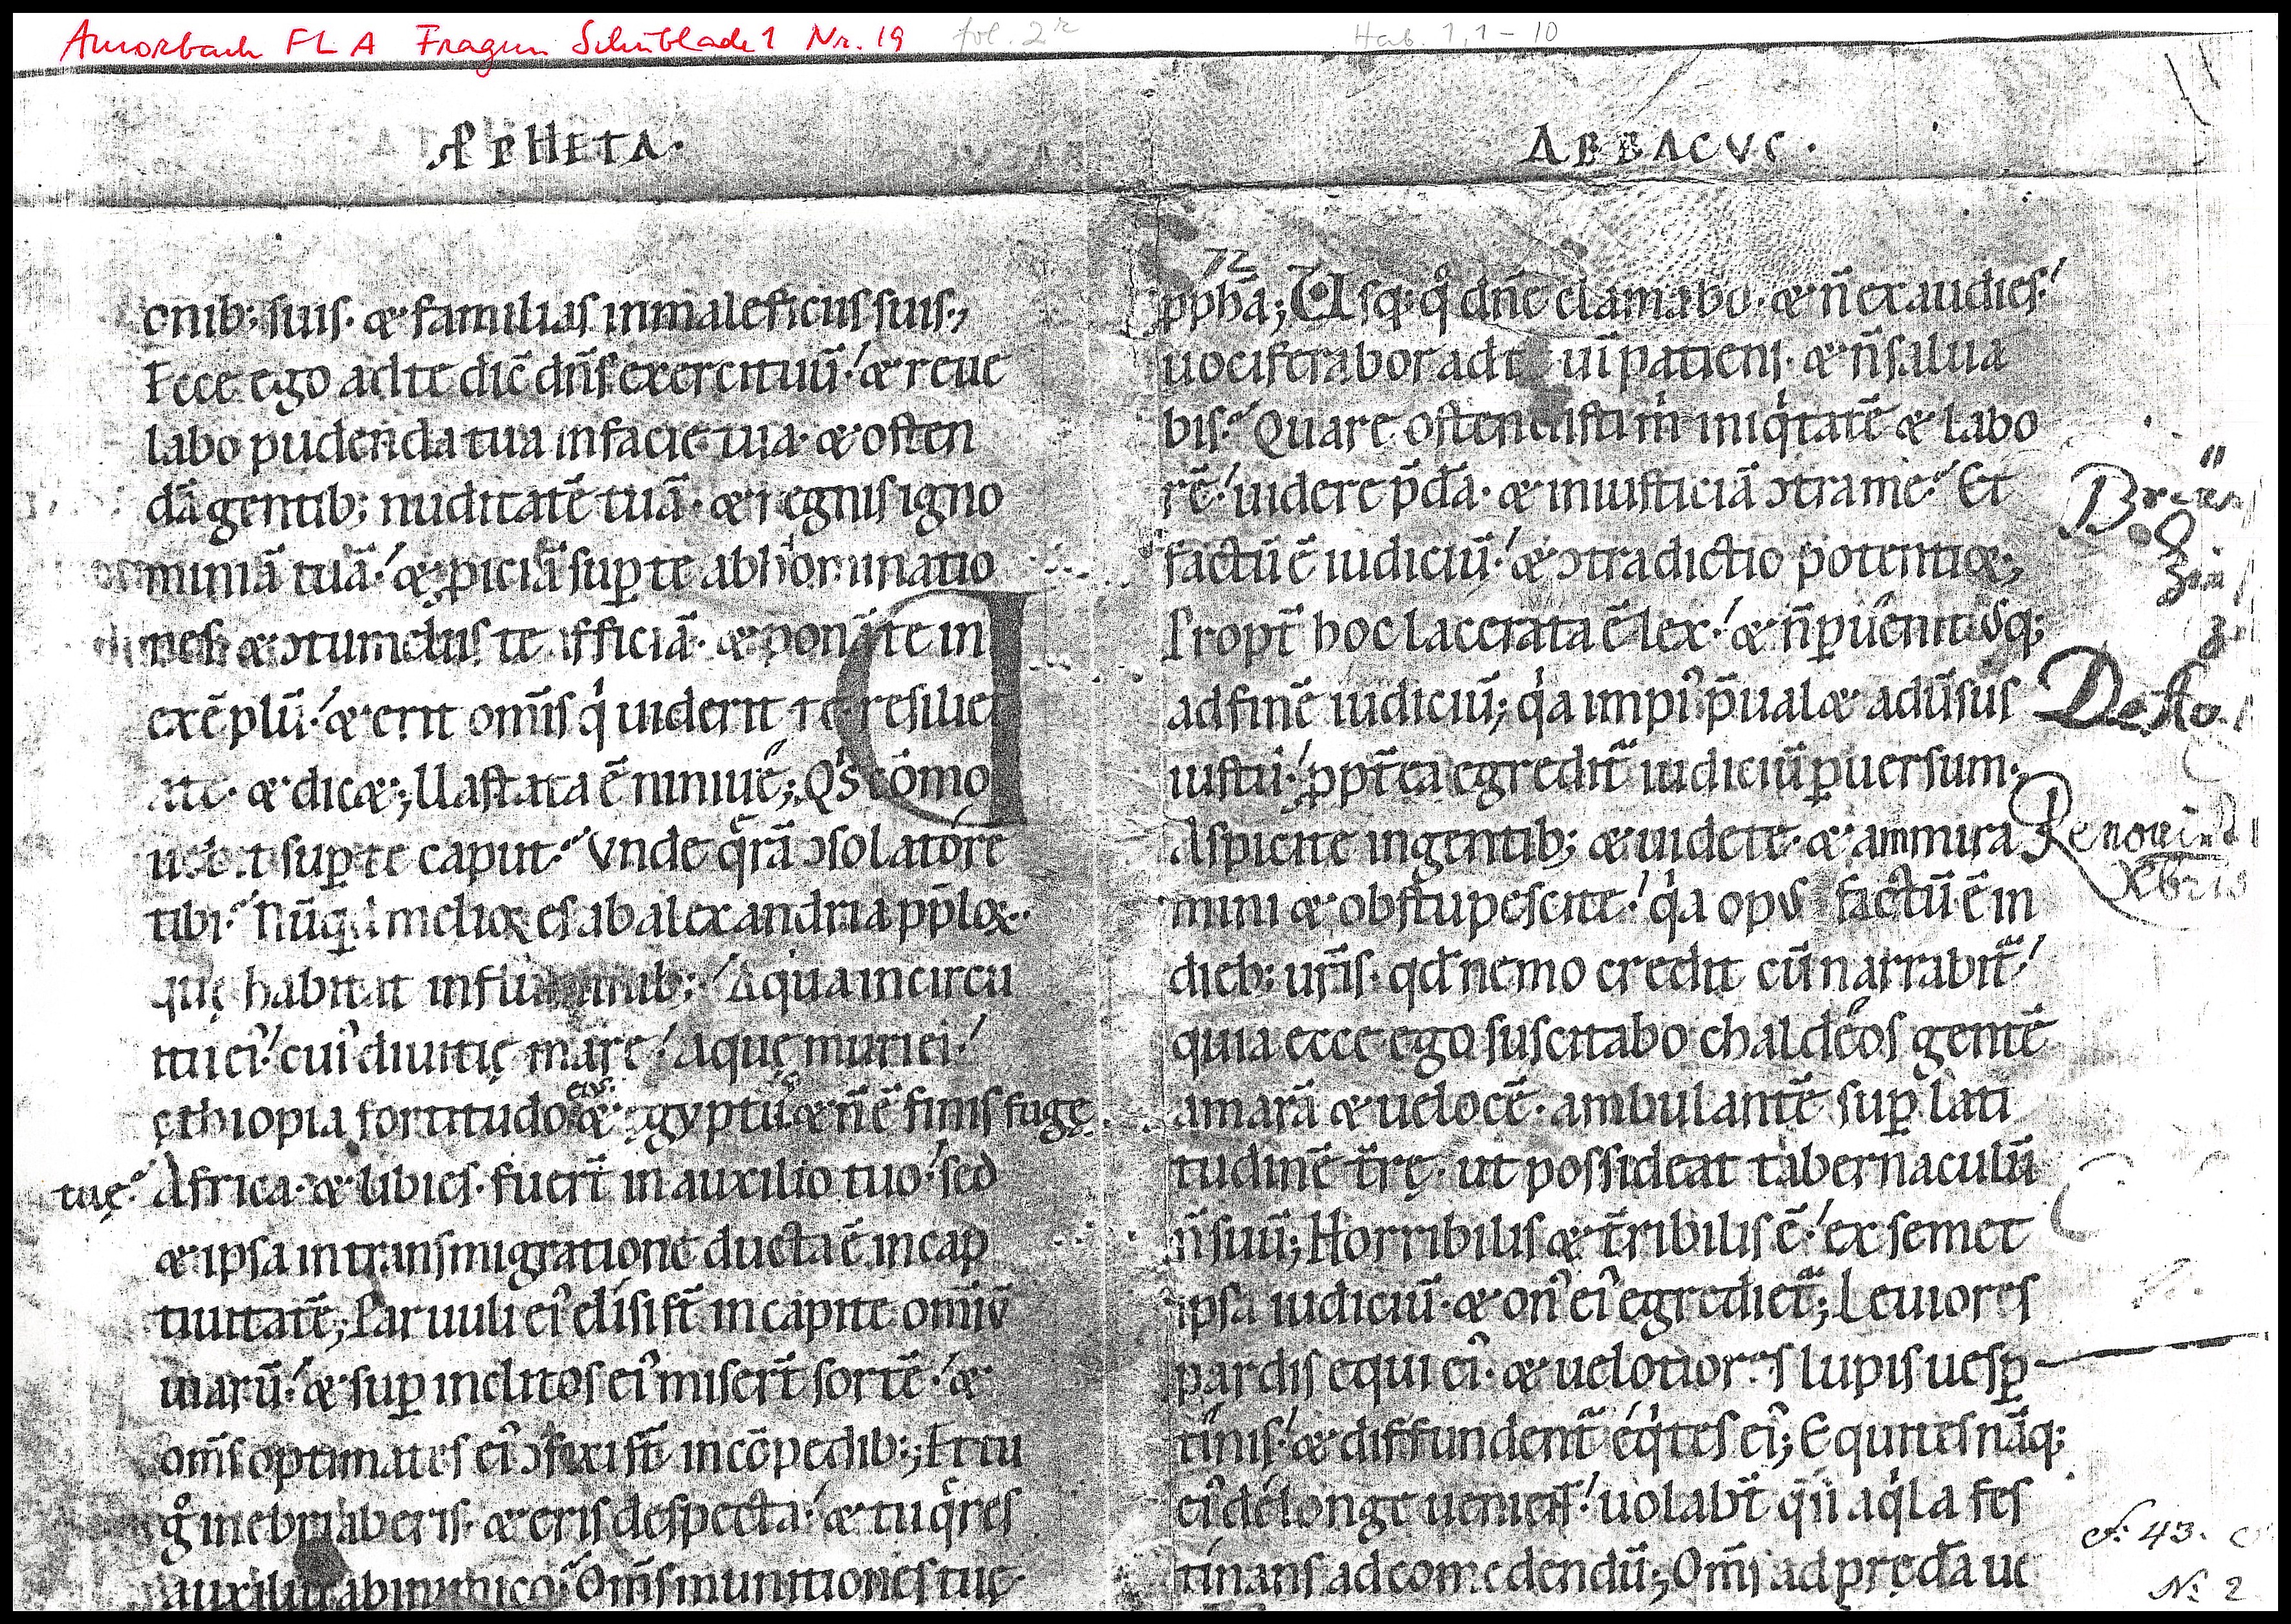 Amorbach FLA Fragm Schublade 1 Nr. 19 fol. 2r Hab. 1,1-10
PPHETA·
ABBACVC·
onib; suis· & familias in maleficiis suis·,
Ecce ego ad te dic̄ dn̄s exercituū·/ & reue
labo pudenda tua in facie tua· & osten
dā gentib; nuditatē tuā· & regnis igno
miniā tuā·/ & ꝓiciā suꝑ te abhominatio
nes & ↄtumeliis te afficiā· & ponā te in
exēplū·/ & erit om̄is qͥ uiderit te resiliet
a te· & dic&; Uastata ē niniue; Qͥs cōmo
uebit suꝑ te caput· Vnde qͣrā ↄsolatore
tibi· Nūqͥd melior es ab alexandria pp̄lor·
quę habitat in fluminib; / Aqua in circu
itu ei᷒/ cui᷒ diuitię mare·/ aquę muri ei᷒/
ęthiopia fortitudo ei᷒· & ęgyptu᷒· & n̄ ē finis fugę
tuę· Africa· & libies· fuer̄t in auxilio tuo·/ sed
& ipsa in transmigratione ducta ē in cap
tiuitatē; Paruuli ei᷒ elisi sn̄t in capite om̄iū
uiarū·/ & suꝑ inclitos ei᷒ miser̄t sortē·/ &
om̄s optimates ei᷒ ↄfixi sn̄t in cōpedib:; Et tu
gͦ inebriaberis· & eris despecta·/ & tu qͣres
auxiliū ab inimico· Om̄s munitiones tuę·
72
ꝓph̄a; Usq; qͦ dn̄e clamabo· & n̄ exaudies·/
uociferabor ad te uī patiens· & n̄ salua
bis· Quare ostendisti m̄ iniqͥtatē & labo
rē·/ uidere p̄dā· & iniusticiā ↄtra me· Et
factū ē iudiciū·/ & ↄtradictio potentior;
Propt̄ hoc lacerata ē lex·/ & n̄ ꝑuēnit usq;
ad finē iudiciū; qͥa impi᷒ p̄ual& adūsus
iustū·/ ꝓpt̄ea egredit̄ iudiciū ꝑuersum·
Aspicite in gentib; & uidete· & ammira
mini & obstupescite·/ qͥa opus factū ē in
dieb; ur̄is· qd̄ nemo credit cū narrabit̄·/
quia ecce ego suscitabo chaldeos gentē
amarā & uelocē· ambulantē suꝑ lati
tudinē t̄rę· ut possideat tabernaculū
n̄ suū; Horribilis & t̄ribilis ē·/ ex semet
ipsa iudiciū· & on᷒ ei᷒ egrediet̄; Leuiores
pardis equi ei᷒· & uelotiores lupis uesꝑ
tinis·/ & diffundent̄ eqͥtes ei᷒; Equites nāq;
ei᷒ de longe uenient·/ uolabt̄ qͣsi aqͥla fes
tinans ad comedendū; Om̄s ad prędā ue
Renovirt
Xbris
f. 43.
N: 2